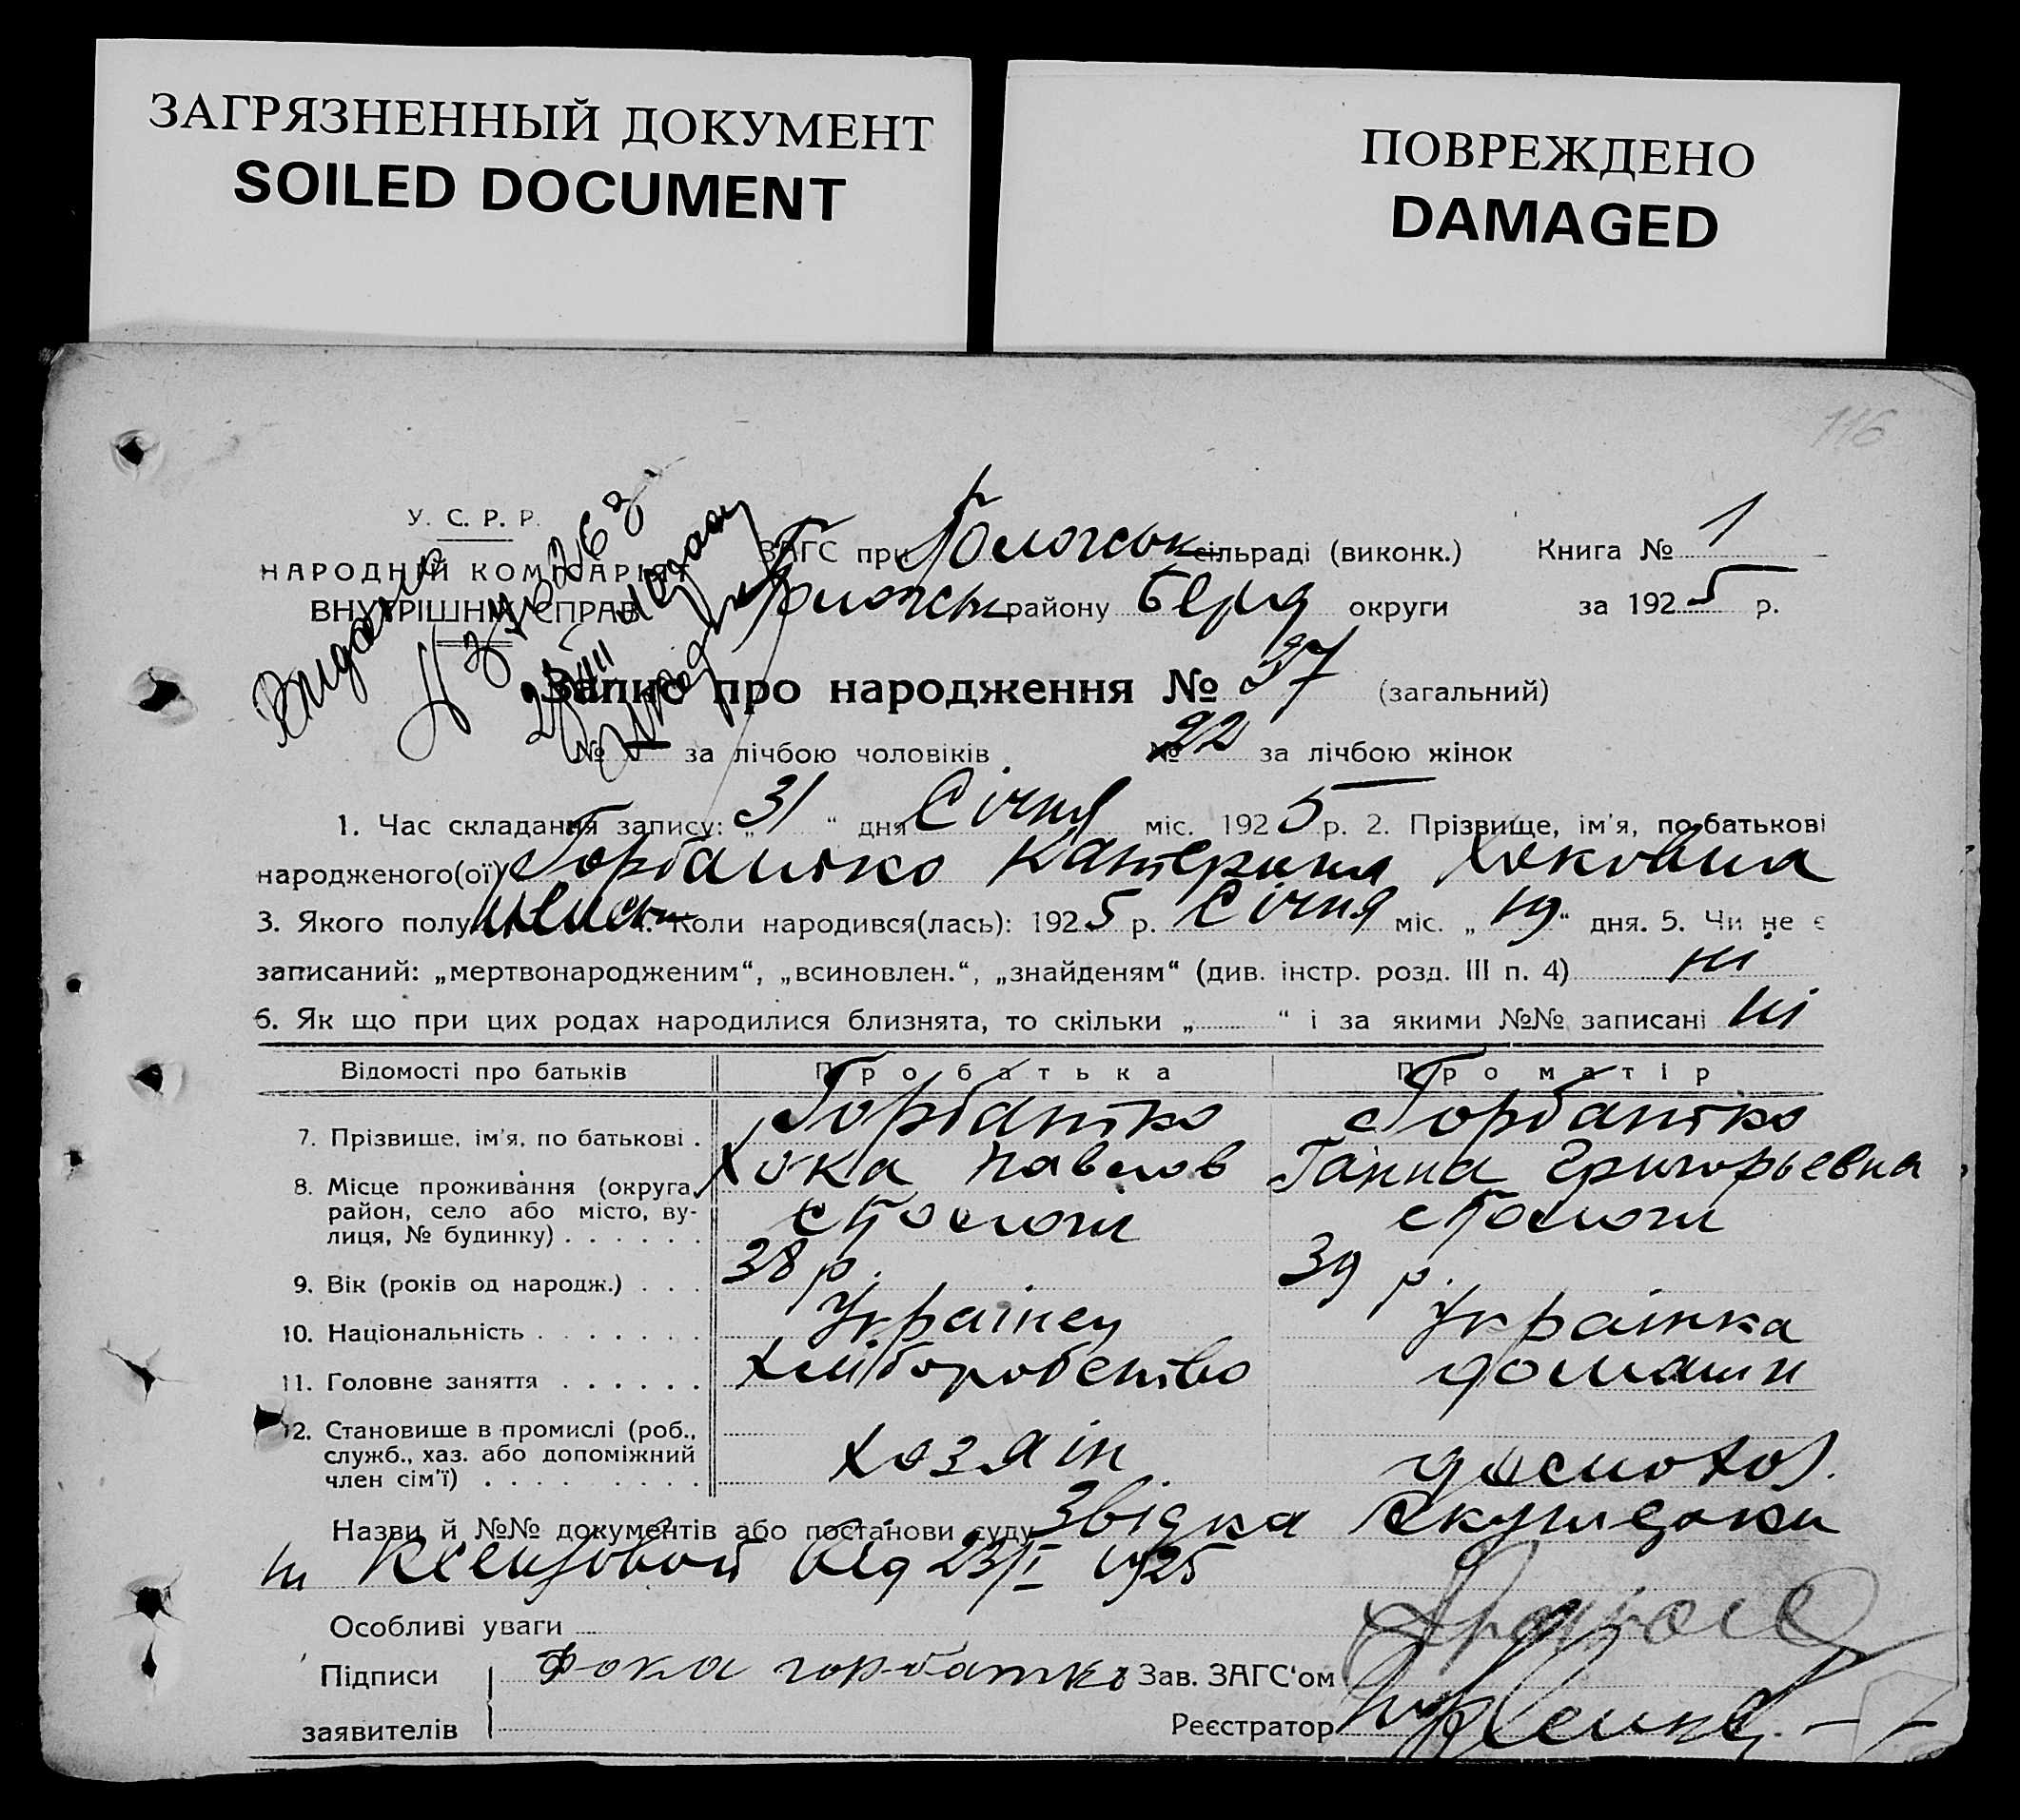 ЗАГРЯЗНЕННЫЙ ДОКУМЕНТ
SOILED DOCUMENT
ПОВРЕЖДЕНО
DAMAGED
116
У. С. Р. Р.
НАРОДНІЙ КОМІСАРІЯТ
ВНУТРІШНІХ СПРАВ
ЗАГС при сільраді (виконк.) Книга № 1
району Берд округи за 1925 р.
Запис про народження № 37 (загальний)
№ за лічбою чоловіків № 22 за лічбою жінок
1. Час складання запису: „31“ дня Січня міс. 1925 р. 2. Прізвище, ім'я, по батькові
народженого(ої) Горбатко Катерина Хоковна
3. Якого полу 4. Коли народився(лась): 1925 р. Січня міс. „19“ дня. 5. Чи не є
записаний: „мертвонародженим“, „всиновлен.“, „знайденям“ (див. інстр. розд. III п. 4) ні
6. Як що при цих родах народилися близнята, то скільки „ “ і за якими №№ записані ні
Відомості про батьків Про батька Про матір
7. Прізвище, ім'я, по батькові . Горбатко Хока Павлов Горбатко Ганна Григорьевна
8. Місце проживання (округа,
район, село або місто, ву-
лиця, № будинку) . . . . . .
9. Вік (років од народж.) . . . 38 р. 39 р.
10. Національність . . . . . . . Українец Українка
11. Головне заняття . . . . . . хліборобство домашн
12. Становище в промислі (роб.,
служб., хаз. або допоміжний
член сім'ї) . . . . . . . . . хозяін
Назви й №№ документів або постанови суду Звідка Акушерки
від 23/I 1925
Особливі уваги
Підписи Фока горбатко Зав. ЗАГС'ом
заявителів Реєстратор